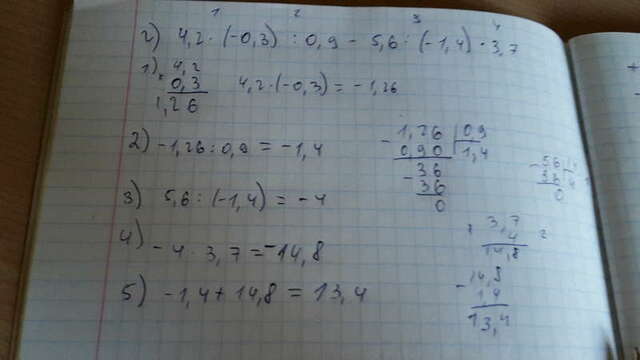 1 2 3 4
г) 4,2 · (-0,3) : 0,9 - 5,6 : (-1,4) · 3,7
1) × 4,2
0,3
1,26
4,2 · (-0,3) = -1,26
2) -1,26 : 0,9 = -1,4
- 1,26 | 0,9
0,90 | 1,4
- 36
36
0
3) 5,6 : (-1,4) = -4
4) -4 · 3,7 = -14,8
× 3,7
4
14,8
5) -1,4 + 14,8 = 13,4
- 14,8
1,4
13,4